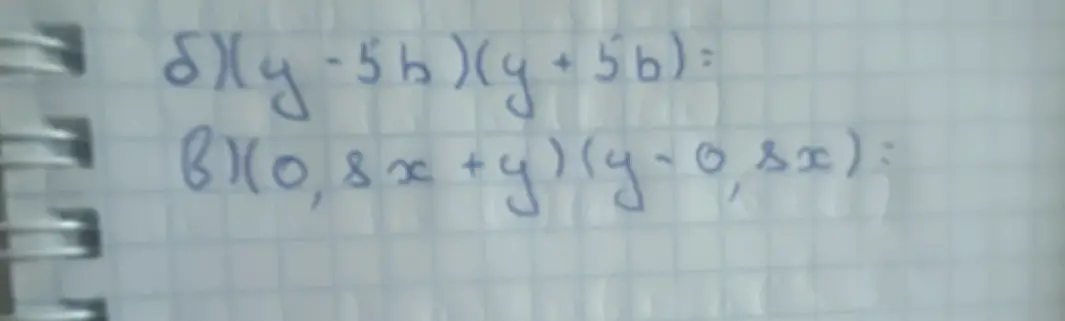 б)(y - 5b)(y + 5b)=
в)(0,8x + y)(y - 0,8x)=